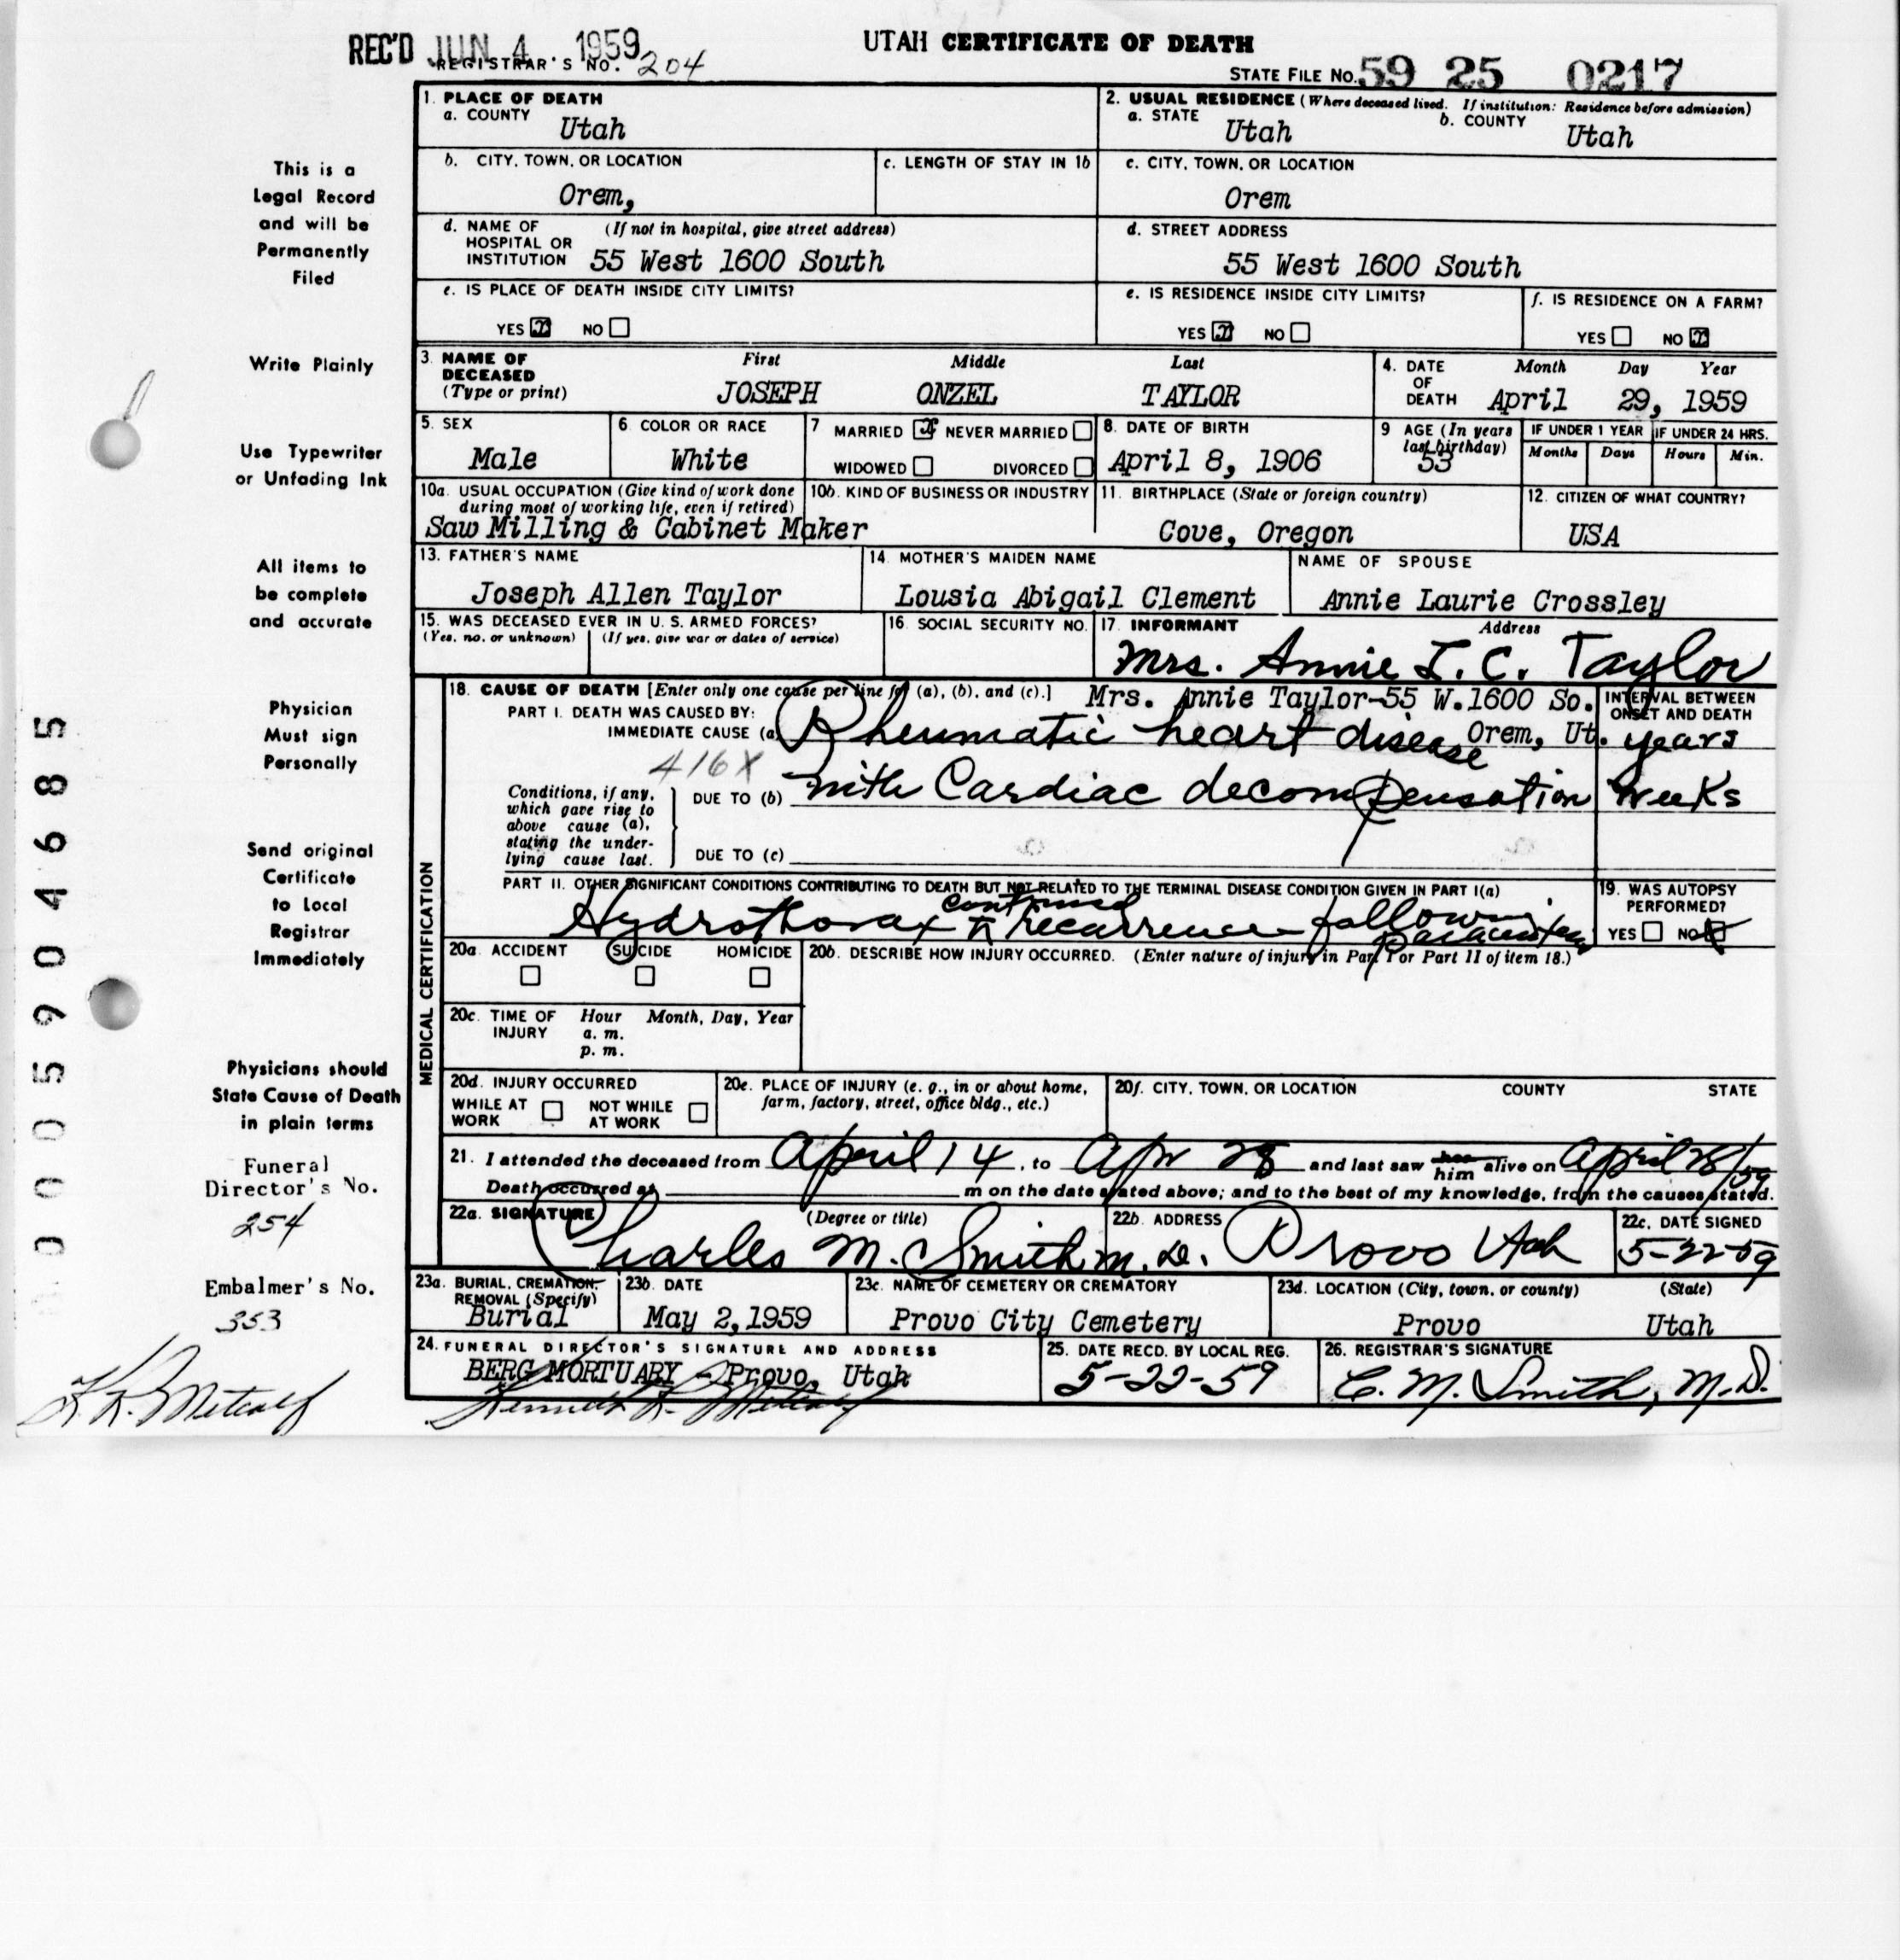 REC'D JUN 4 1959
UTAH CERTIFICATE OF DEATH
REGISTRAR'S NO. 204
STATE FILE NO. 59 25 0217
1. PLACE OF DEATH
a. COUNTY
Utah
2. USUAL RESIDENCE (Where deceased lived. If institution: Residence before admission)
a. STATE
Utah
b. COUNTY
Utah
b. CITY, TOWN, OR LOCATION
Orem,
c. LENGTH OF STAY IN 1b
c. CITY, TOWN, OR LOCATION
Orem
d. NAME OF HOSPITAL OR INSTITUTION
(If not in hospital, give street address)
55 West 1600 South
d. STREET ADDRESS
55 West 1600 South
e. IS PLACE OF DEATH INSIDE CITY LIMITS?
YES x NO
e. IS RESIDENCE INSIDE CITY LIMITS?
YES x NO
f. IS RESIDENCE ON A FARM?
YES NO x
3. NAME OF DECEASED
(Type or print)
First Middle Last
JOSEPH ONZEL TAYLOR
4. DATE OF DEATH
Month Day Year
April 29, 1959
5. SEX
Male
6 COLOR OR RACE
White
7 MARRIED x NEVER MARRIED
WIDOWED DIVORCED
8. DATE OF BIRTH
April 8, 1906
9 AGE (In years last birthday)
53
IF UNDER 1 YEAR IF UNDER 24 HRS.
Months Days Hours Min.
10a. USUAL OCCUPATION (Give kind of work done during most of working life, even if retired)
Saw Milling & Cabinet Maker
10b. KIND OF BUSINESS OR INDUSTRY
11. BIRTHPLACE (State or foreign country)
Cove, Oregon
12. CITIZEN OF WHAT COUNTRY?
USA
13. FATHER'S NAME
Joseph Allen Taylor
14. MOTHER'S MAIDEN NAME
Lousia Abigail Clement
NAME OF SPOUSE
Annie Laurie Crossley
15. WAS DECEASED EVER IN U. S. ARMED FORCES?
(Yes, no, or unknown) (If yes, give war or dates of service)
16. SOCIAL SECURITY NO.
17. INFORMANT Address
Mrs. Annie L. C. Taylor
Mrs. Annie Taylor-55 W.1600 So.
Orem, Ut.
18. CAUSE OF DEATH [Enter only one cause per line for (a), (b), and (c).]
INTERVAL BETWEEN ONSET AND DEATH
PART I. DEATH WAS CAUSED BY:
IMMEDIATE CAUSE (a) Rheumatic heart disease years
416X
Conditions, if any, which gave rise to above cause (a), stating the underlying cause last.
DUE TO (b) with Cardiac decompensation Weeks
DUE TO (c)
PART II. OTHER SIGNIFICANT CONDITIONS CONTRIBUTING TO DEATH BUT NOT RELATED TO THE TERMINAL DISEASE CONDITION GIVEN IN PART I(a)
Hydrothorax continued recurrence following paracentesis
19. WAS AUTOPSY PERFORMED?
YES NO x
20a. ACCIDENT SUICIDE HOMICIDE
20b. DESCRIBE HOW INJURY OCCURRED. (Enter nature of injury in Part I or Part II of item 18.)
20c. TIME OF INJURY
Hour Month, Day, Year
a. m.
p. m.
20d. INJURY OCCURRED
WHILE AT WORK NOT WHILE AT WORK
20e. PLACE OF INJURY (e. g., in or about home, farm, factory, street, office bldg., etc.)
20f. CITY, TOWN, OR LOCATION COUNTY STATE
21. I attended the deceased from April 14, to Apr 28 and last saw her him alive on April 28/59
Death occurred at m on the date stated above; and to the best of my knowledge, from the causes stated.
22a. SIGNATURE (Degree or title)
Charles M. Smith M. D.
22b. ADDRESS
Provo Utah
22c. DATE SIGNED
5-22-59
23a. BURIAL, CREMATION, REMOVAL (Specify)
Burial
23b. DATE
May 2,1959
23c. NAME OF CEMETERY OR CREMATORY
Provo City Cemetery
23d. LOCATION (City, town, or county) (State)
Provo Utah
24. FUNERAL DIRECTOR'S SIGNATURE AND ADDRESS
BERG MORTUARY - Provo, Utah
Kenneth K. Metcalf
25. DATE RECD. BY LOCAL REG.
5-22-59
26. REGISTRAR'S SIGNATURE
C. M. Smith, M.D.
MEDICAL CERTIFICATION
This is a
Legal Record
and will be
Permanently
Filed
Write Plainly
Use Typewriter
or Unfading Ink
All items to
be complete
and accurate
Physician
Must sign
Personally
Send original
Certificate
to Local
Registrar
Immediately
Physicians should
State Cause of Death
in plain terms
Funeral
Director's No.
254
Embalmer's No.
353
K. K. Metcalf
0005904685